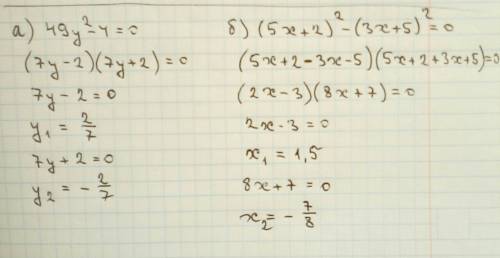 а) 49y² - 4 = 0
(7y - 2)(7y + 2) = 0
7y - 2 = 0
y₁ = 2/7
7y + 2 = 0
y₂ = - 2/7
б) (5x + 2)² - (3x + 5)² = 0
(5x + 2 - 3x - 5)(5x + 2 + 3x + 5) = 0
(2x - 3)(8x + 7) = 0
2x - 3 = 0
x₁ = 1,5
8x + 7 = 0
x₂ = - 7/8